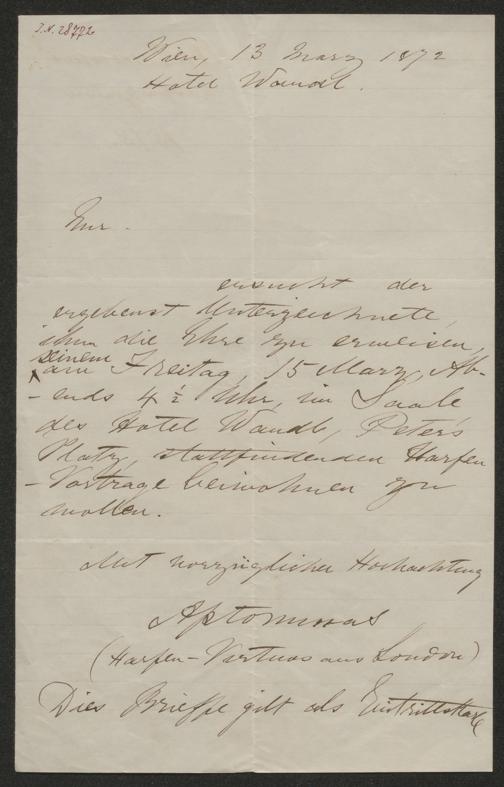 I.N. 28772
Wien, 13 März 1872
Hotel Wandl.
Eur.
ersucht der
ergebenst Unterzeichnete,
ihm die Ehre zu erweisen,
seinem
am Freitag, 15 März, Ab-
-ends 4 ½ Uhr, im Saale
des Hotel Wandl, Peter's
Platz, stattfindenden Harfen
-Vortrage beiwohnen zu
wollen.
Mit vorzüglicher Hochachtung
Aptommas
(Harfen-Virtuos aus London)
Dies Brieffe gilt als Eintrittskarte